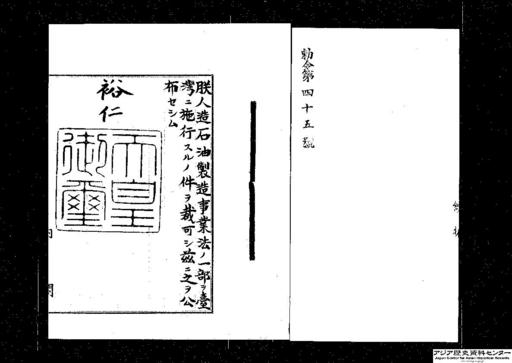 勅令第四十五號
朕人造石油製造事業法ノ一部ヲ臺
灣ニ施行スルノ件ヲ裁可シ茲ニ之ヲ公
布セシム
裕仁
天皇
御璽
内閣
アジア歴史資料センター
Japan Center for Asian Historical Records